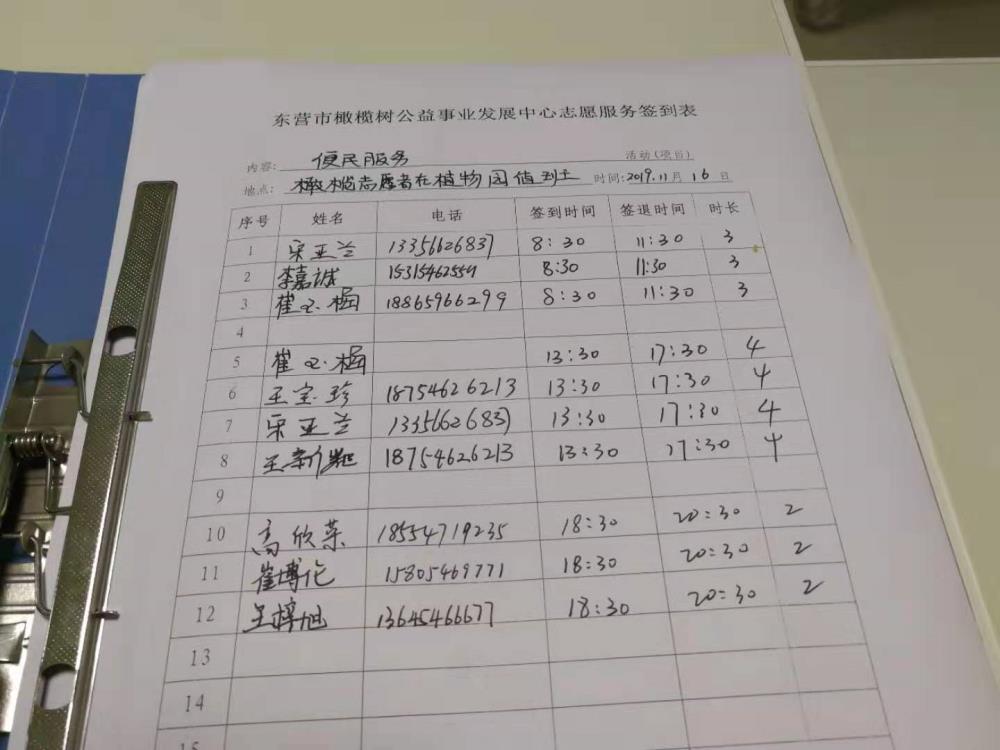 东营市橄榄树公益事业发展中心志愿服务签到表
内容: 便民服务 活动(项目)
地点: 橄榄志愿者在植物园值 时间:2019.11月16日
序号 姓名 电话 签到时间 签退时间 时长
1 宋亚兰 13356626837 8:30 11:30 3
2 李嘉诚 15315462554 8:30 11:30 3
3 崔玉梅 18865966299 8:30 11:30 3
4
5 崔玉梅 13:30 17:30 4
6 王宝珍 18754626213 13:30 17:30 4
7 宋亚兰 13356626837 13:30 17:30 4
8 王新 18754626213 13:30 17:30 4
9
10 高欣荣 18554719235 18:30 20:30 2
11 崔博伦 15805469771 18:30 20:30 2
12 吴梓旭 13645466677 18:30 20:30 2
13
14
15